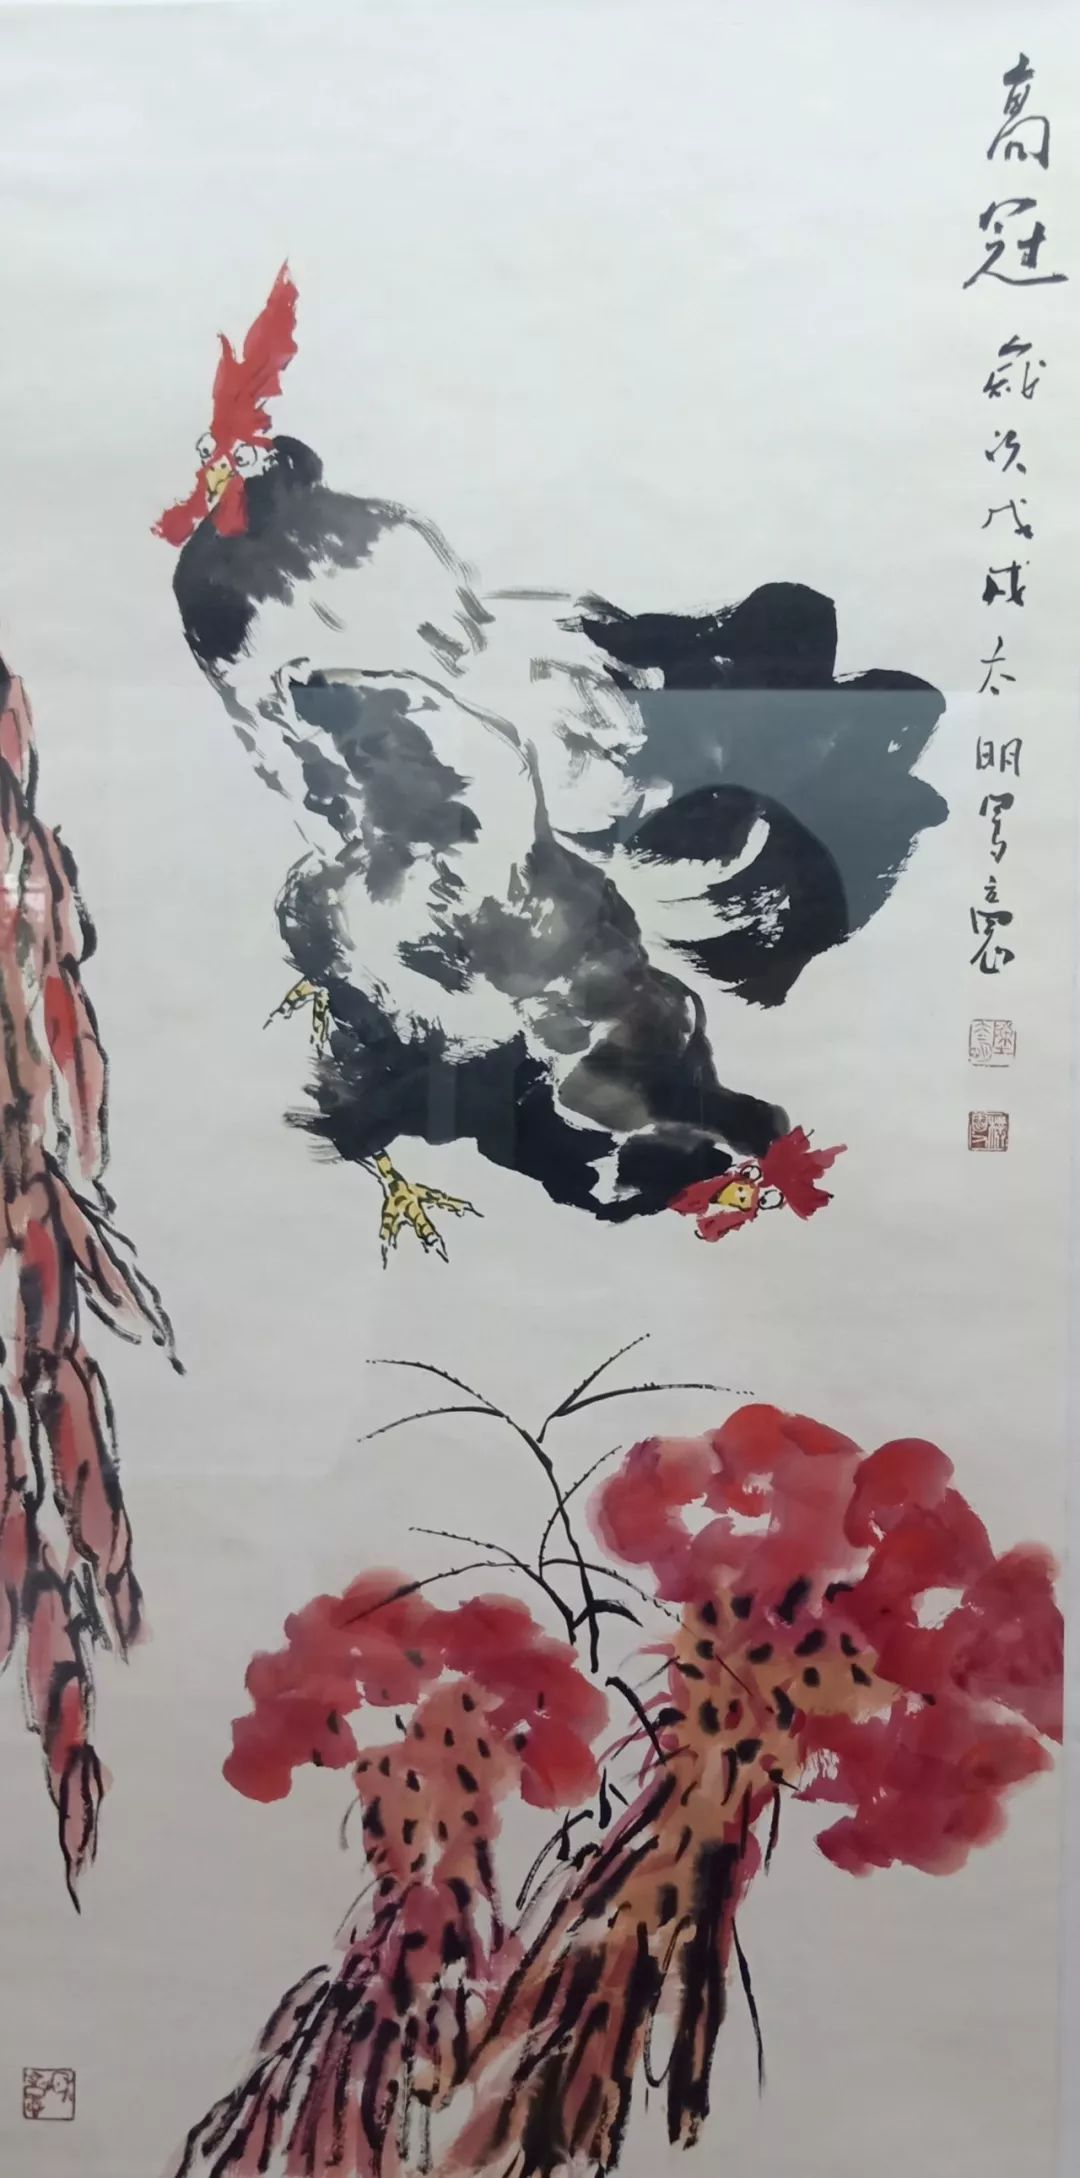 高冠 歲次戊戌太明写意